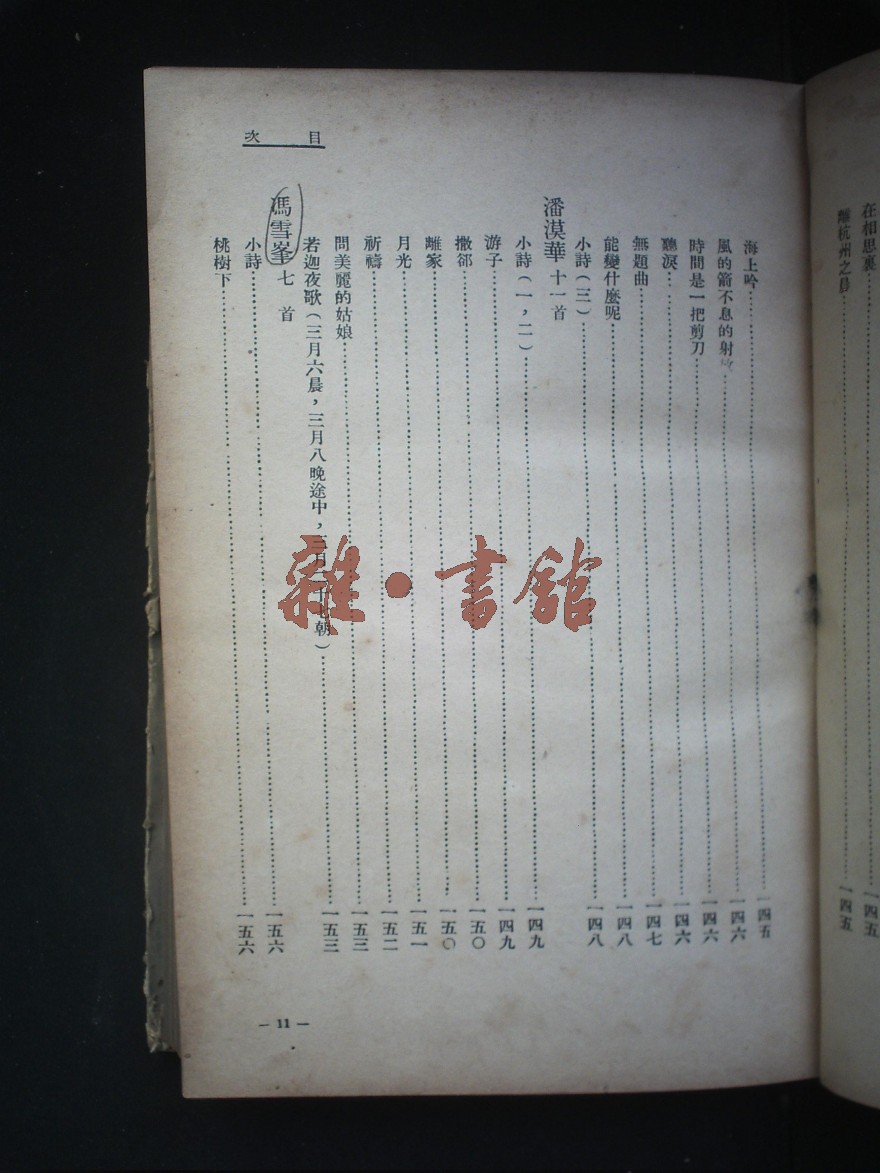 在相思裏……一四五
離杭州之晨……一四五
目次
海上吟……一四五
風的箭不息的射……一四六
時間是一把剪刀……一四六
聽淚……一四六
無題曲……一四七
能變什麼呢……一四八
小詩（三）……一四八
潘漠華 十一首
小詩（一，二）……一四九
游子……一四九
撒郤……一五〇
離家……一五〇
月光……一五一
祈禱……一五二
問美麗的姑娘……一五三
若迦夜歌（三月六晨，三月八晚途中，三月二十七朝）……一五三
馮雪峯 七首
小詩……一五六
桃樹下……一五六
— 11 —
雜·書館